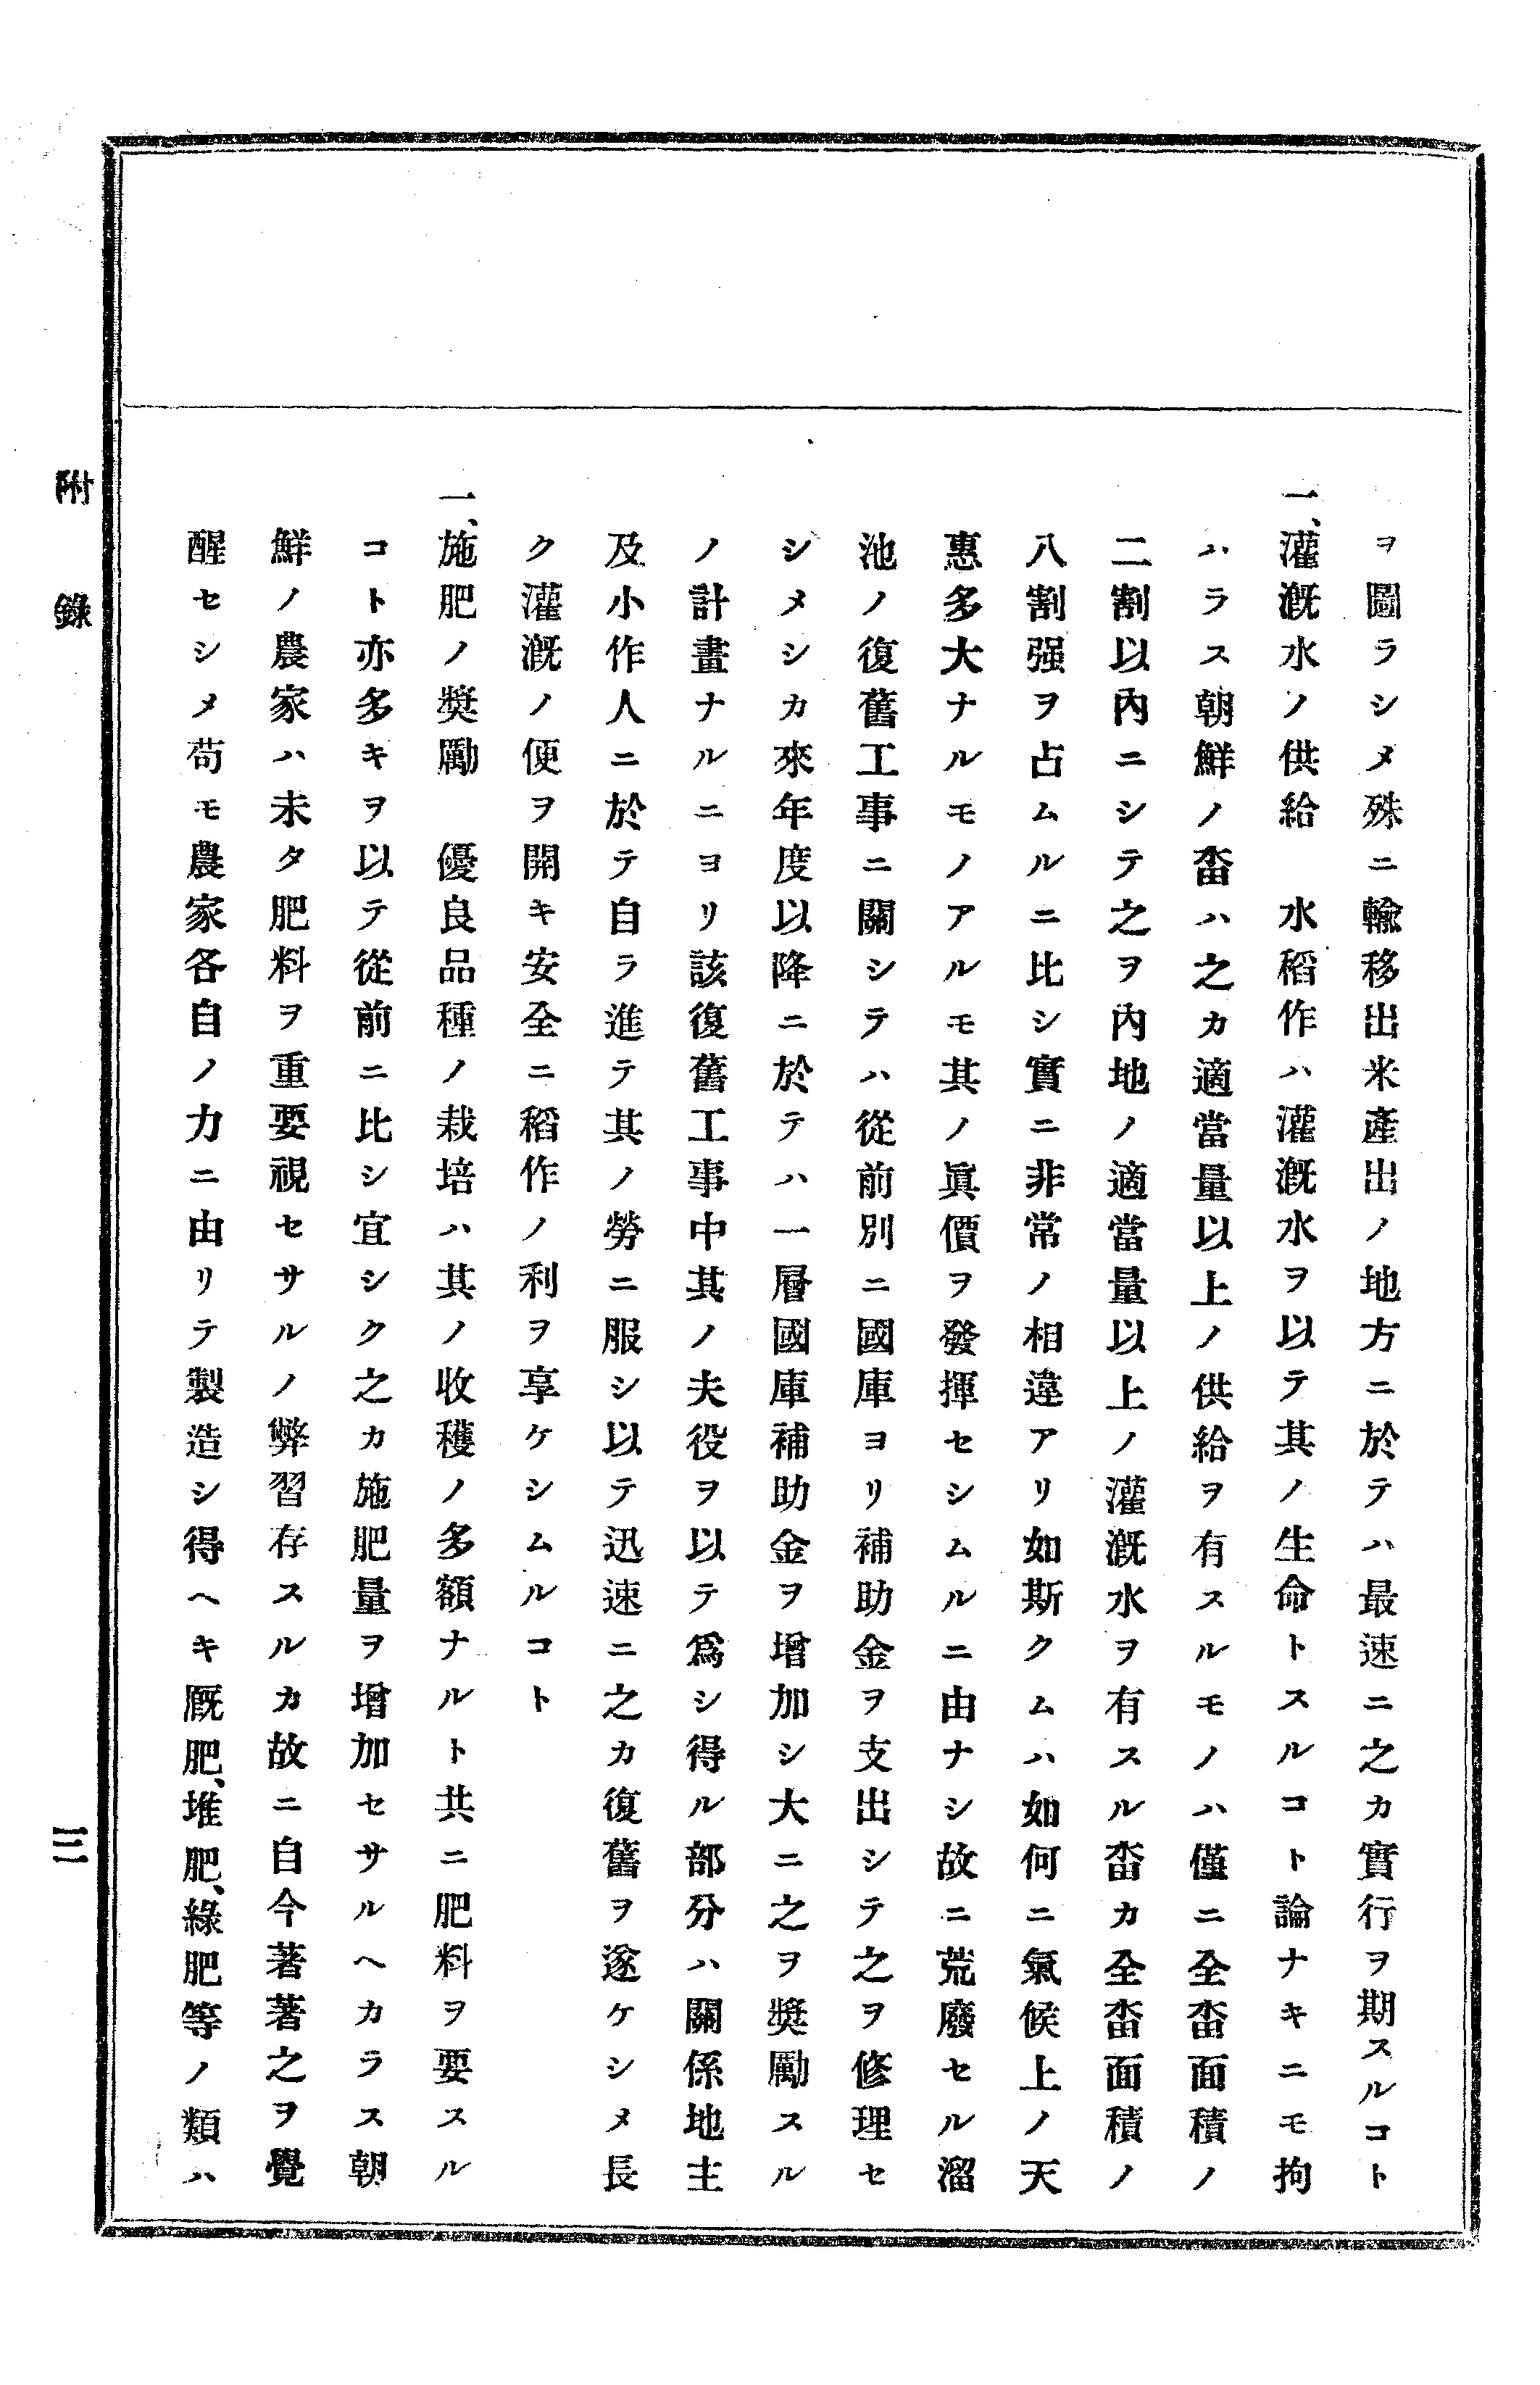 ヲ圖ラシメ殊ニ輸移出米產出ノ地方ニ於テハ最速ニ之カ實行ヲ期スルコト
一、灌漑水ノ供給　水稻作ハ灌漑水ヲ以テ其ノ生命トスルコト論ナキニモ拘
ハラス朝鮮ノ畓ハ之カ適當量以上ノ供給ヲ有スルモノハ僅ニ全畓面積ノ
二割以內ニシテ之ヲ內地ノ適當量以上ノ灌漑水ヲ有スル畓カ全畓面積ノ
八割强ヲ占ムルニ比シ實ニ非常ノ相違アリ如斯クムハ如何ニ氣候上ノ天
惠多大ナルモノアルモ其ノ眞價ヲ發揮セシムルニ由ナシ故ニ荒廢セル溜
池ノ復舊工事ニ關シテハ從前別ニ國庫ヨリ補助金ヲ支出シテ之ヲ修理セ
シメシカ來年度以降ニ於テハ一層國庫補助金ヲ增加シ大ニ之ヲ奬勵スル
ノ計畫ナルニヨリ該復舊工事中其ノ夫役ヲ以テ爲シ得ル部分ハ關係地主
及小作人ニ於テ自ラ進テ其ノ勞ニ服シ以テ迅速ニ之カ復舊ヲ遂ケシメ長
ク灌漑ノ便ヲ開キ安全ニ稻作ノ利ヲ享ケシムルコト
一、施肥ノ奬勵　優良品種ノ栽培ハ其ノ收穫ノ多額ナルト共ニ肥料ヲ要スル
コト亦多キヲ以テ從前ニ比シ宜シク之カ施肥量ヲ增加セサルヘカラス朝
鮮ノ農家ハ未タ肥料ヲ重要視セサルノ弊習存スルカ故ニ自今著著之ヲ覺
醒セシメ苟モ農家各自ノ力ニ由リテ製造シ得ヘキ厩肥、堆肥、綠肥等ノ類ハ
附錄
三